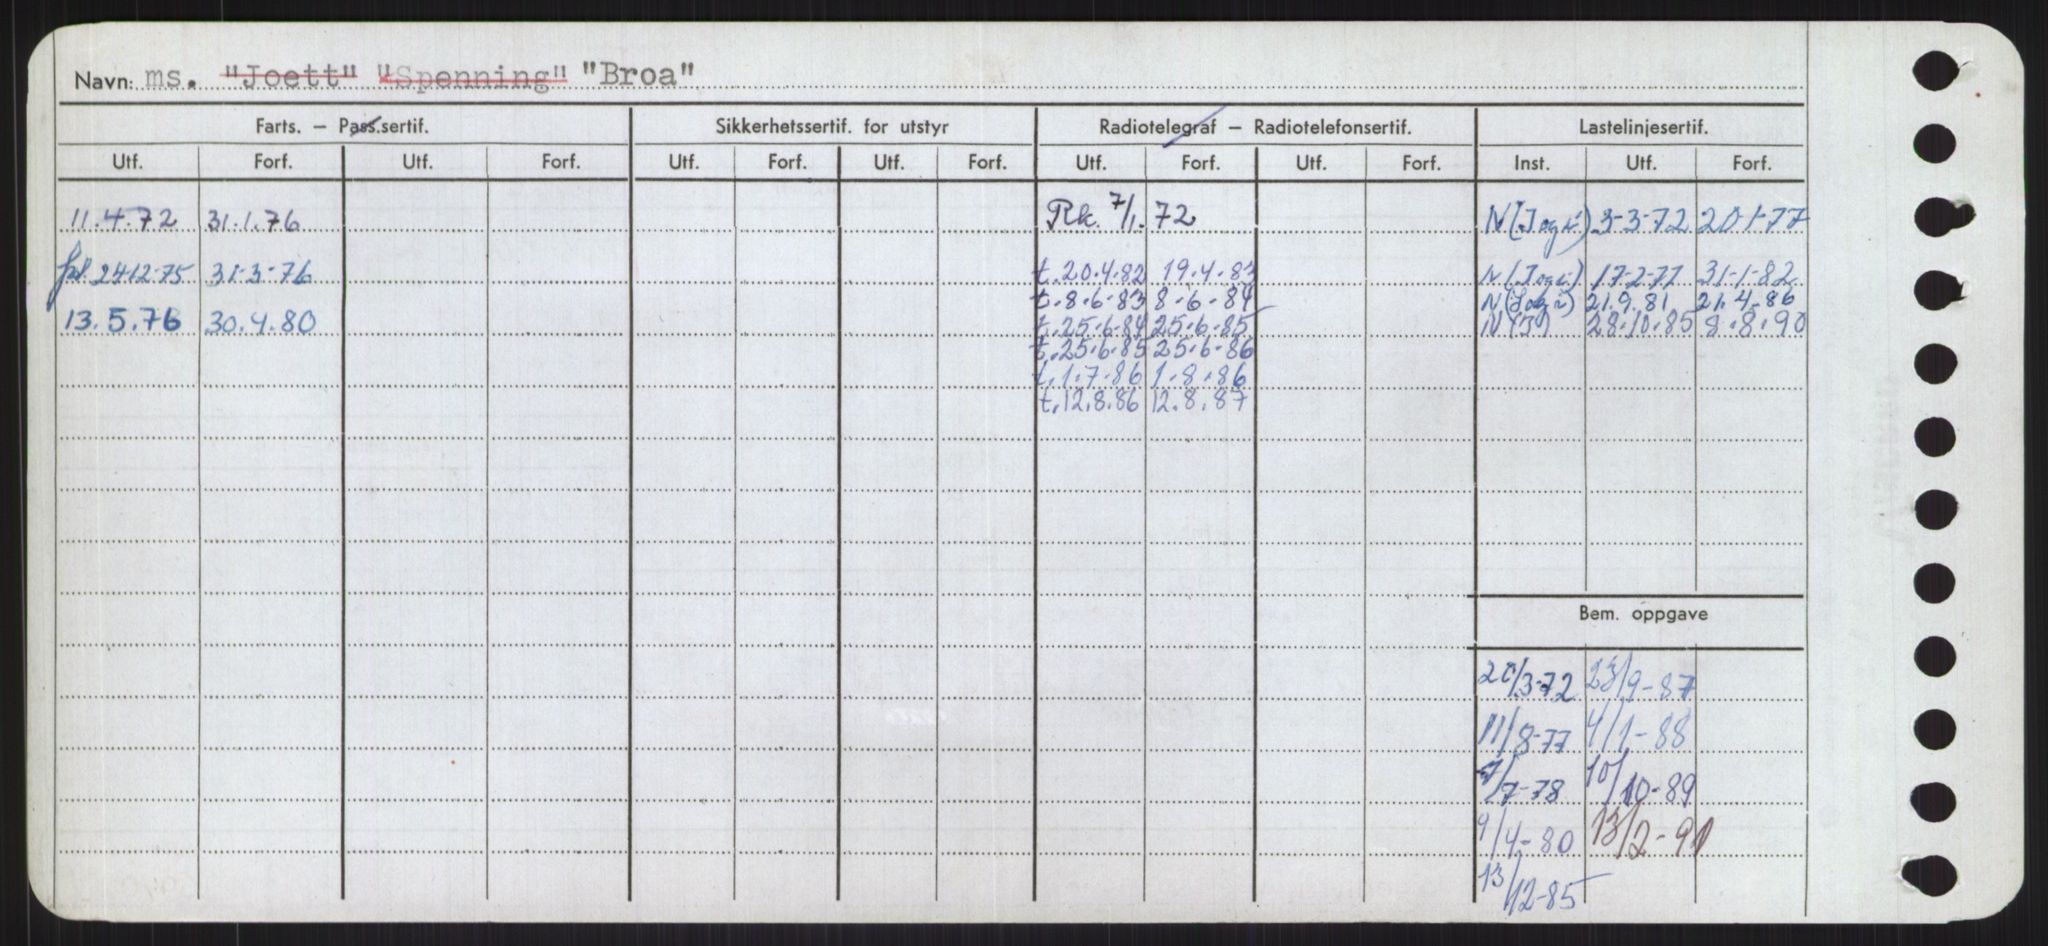 Navn: ms. "Joett" "Spenning" "Broa"
Farts. – Pass.sertif. Sikkerhetssertif. for utstyr Radiotelegraf – Radiotelefonsertif. Lastelinjesertif.
Utf. Forf. Utf. Forf. Utf. Forf. Utf. Forf. Utf. Forf. Utf. Forf. Inst. Utf. Forf.
11.4.72 31.1.76 Rk. 7/1.72 3-3-72 20 1-77
24-12-75 31-3-76 t.20.4.82 19.4.83 17-2-77 31-1-82
t.8.6-83 8-6-84 21.9.81 21.4.86
13.5.76 30.4.80 t.25.6.84 25.6-85 N(J) 28.10.85 8.8.90
t.25.6.85 25.6-86
t.1.7.86 1.8.86
t.12.8.86 12.8.87
Bem. oppgave
/3-72 /9-87
11/8-77 4/1-88
/7-78 10/10-89
9/4-80 13/2-91
13/12-85